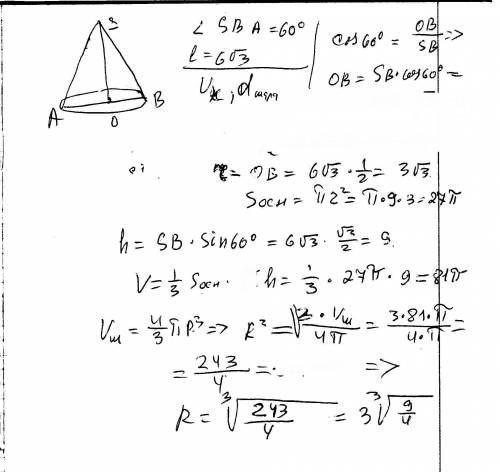 S
A
O
B
∠ SBA = 60°
l = 6√3
V_к ; d шара
cos 60° = OB/SB =>
OB = SB · cos 60° =
r = OB = 6√3 · 1/2 = 3√3
Sосн = πr² = π · 9 · 3 = 27π
h = SB · sin 60° = 6√3 · √3/2 = 9
V = 1/3 Sосн · h = 1/3 · 27π · 9 = 81π
Vш = 4/3 πR³ => R³ = 3 · Vш / 4π = 3 · 81 · π / 4 · π =
= 243/4 = =>
R = ³√(243/4) = 3 ³√(9/4)